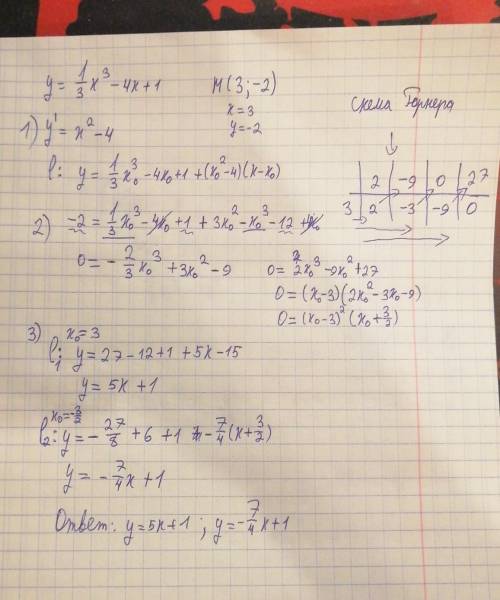 y = 1/3 x³ - 4x + 1    M(3; -2)
x = 3
y = -2
Схема Горнера
1) y' = x² - 4
l: y = 1/3 x₀³ - 4x₀ + 1 + (x₀² - 4)(x - x₀)
2 | -9 | 0 | 27
3 | 2 | -3 | -9 | 0
2) -2 = 1/3 x₀³ - 4x₀ + 1 + 3x₀² - x₀³ - 12 + 4x₀
0 = - 2/3 x₀³ + 3x₀² - 9
0 = 2x₀³ - 9x₀² + 27
0 = (x₀ - 3)(2x₀² - 3x₀ - 9)
0 = (x₀ - 3)² (x₀ + 3/2)
3) x₀ = 3
l₁: y = 27 - 12 + 1 + 5x - 15
y = 5x + 1
x₀ = -3/2
l₂: y = - 27/8 + 6 + 1 - 7/4 (x + 3/2)
y = - 7/4 x + 1
Ответ: y = 5x + 1 ; y = - 7/4 x + 1